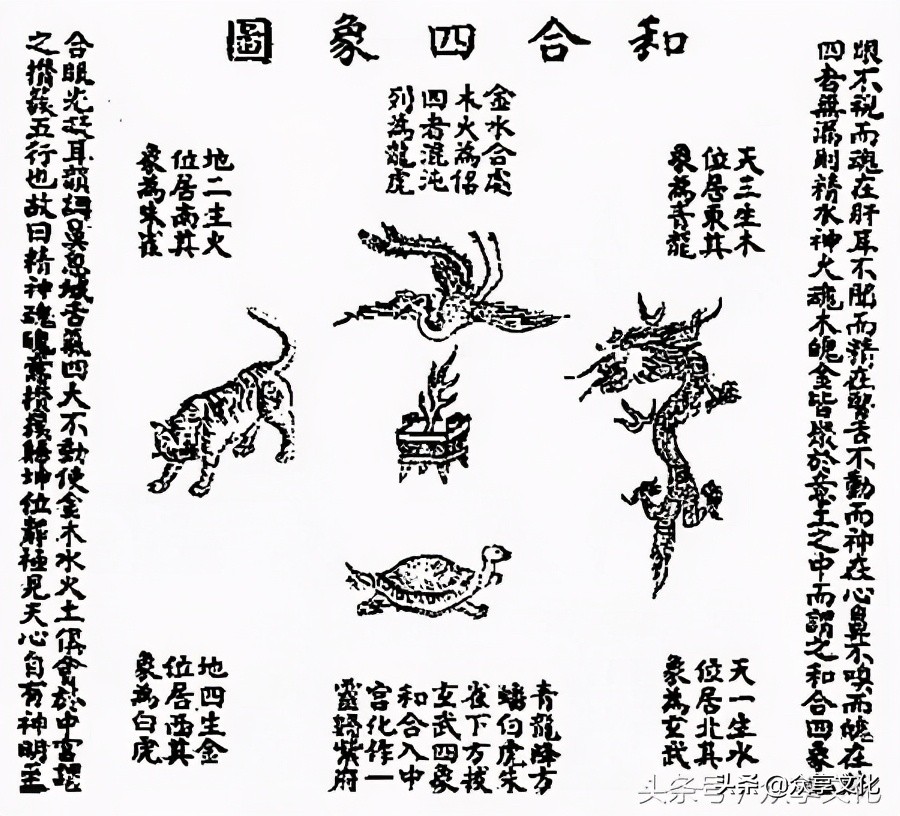 和合四象圖
眼不視而魂在肝耳不聞而精在腎舌不動而神在心鼻不嗅而魄在
四者無漏則精水神火魂木魄金皆聚於意土之中而謂之和合四象
天三生木
位居東其
象為青龍
金水合處
木火為侶
四者混沌
列為龍虎
地二生火
位居南其
象為朱雀
天一生水
位居北其
象為玄武
青龍降方
蟠伯虎朱
雀下方拔
玄武四象
和合入中
宮化作一
靈歸紫府
地四生金
位居西其
象為白虎
合眼光凝耳韻調鼻息緘舌氣四大不動使金木水火土俱會於中宮謂
之攢簇五行也故曰精神魂魄意攢簇歸坤位靜極見天心自有神明至
头条 @众享文化